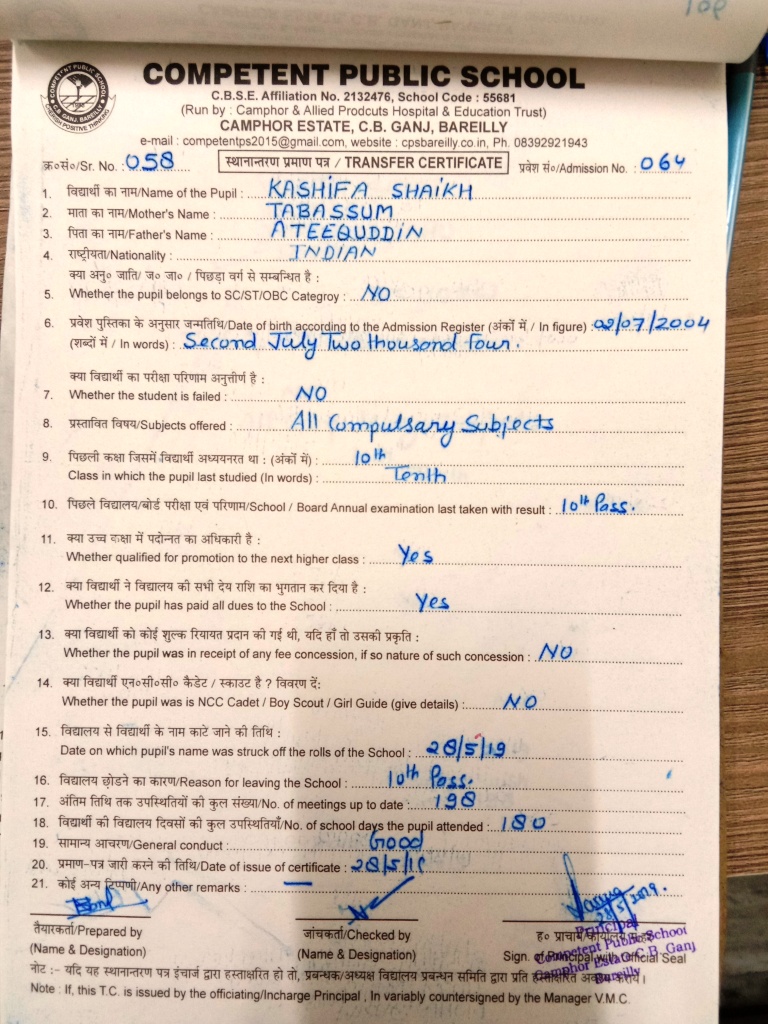 COMPETENT PUBLIC SCHOOL
C.B. GANJ, BAREILLY
COMPETENT PUBLIC SCHOOL
C.B.S.E. Affiliation No. 2132476, School Code : 55681
(Run by : Camphor & Allied Prodcuts Hospital & Education Trust)
CAMPHOR ESTATE, C.B. GANJ, BAREILLY
e-mail : competentps2015@gmail.com, website : cpsbareilly.co.in, Ph. 08392921943
क्र०सं०/Sr. No. : 058 स्थानान्तरण प्रमाण पत्र / TRANSFER CERTIFICATE प्रवेश सं०/Admission No. : 064
1. विद्यार्थी का नाम/Name of the Pupil : KASHIFA SHAIKH
2. माता का नाम/Mother's Name : TABASSUM
3. पिता का नाम/Father's Name : ATEEQUDDIN
4. राष्ट्रीयता/Nationality : INDIAN
क्या अनु० जाति/ ज० जा० / पिछड़ा वर्ग से सम्बन्धित है :
5. Whether the pupil belongs to SC/ST/OBC Categroy : NO
6. प्रवेश पुस्तिका के अनुसार जन्मतिथि/Date of birth according to the Admission Register (अंकों में / In figure) : 02/07/2004
(शब्दों में / In words) : Second July Two thousand four.
क्या विद्यार्थी का परीक्षा परिणाम अनुत्तीर्ण है :
7. Whether the student is failed : NO
8. प्रस्तावित विषय/Subjects offered : All Compulsary Subjects
9. पिछली कक्षा जिसमें विद्यार्थी अध्ययनरत था : (अंकों में) : 10th
Class in which the pupil last studied (In words) : Tenth
10. पिछले विद्यालय/बोर्ड परीक्षा एवं परिणाम/School / Board Annual examination last taken with result : 10th Pass.
11. क्या उच्च कक्षा में पदोन्नत का अधिकारी है :
Whether qualified for promotion to the next higher class : Yes
12. क्या विद्यार्थी ने विद्यालय की सभी देय राशि का भुगतान कर दिया है :
Whether the pupil has paid all dues to the School : Yes
13. क्या विद्यार्थी को कोई शुल्क रियायत प्रदान की गई थी, यदि हाँ तो उसकी प्रकृति :
Whether the pupil was in receipt of any fee concession, if so nature of such concession : NO
14. क्या विद्यार्थी एन०सी०सी० कैडेट / स्काउट है ? विवरण दें:
Whether the pupil was is NCC Cadet / Boy Scout / Girl Guide (give details) : NO
15. विद्यालय से विद्यार्थी के नाम काटे जाने की तिथि :
Date on which pupil's name was struck off the rolls of the School : 28/5/19
16. विद्यालय छोडने का कारण/Reason for leaving the School : 10th Pass.
17. अंतिम तिथि तक उपस्थितियों की कुल संख्या/No. of meetings up to date : 198
18. विद्यार्थी की विद्यालय दिवसों की कुल उपस्थितियाँ/No. of school days the pupil attended : 180
19. सामान्य आचरण/General conduct : Good
20. प्रमाण-पत्र जारी करने की तिथि/Date of issue of certificate : 28/5/19
21. कोई अन्य टिप्पणी/Any other remarks : —
28/5/2019.
तैयारकर्ता/Prepared by जांचकर्ता/Checked by ह० प्राचार्य
(Name & Designation) (Name & Designation) Sign. of Principal with Official Seal
Principal
Competent Public School
Camphor Estate C.B. Ganj
Bareilly
नोट :- यदि यह स्थानान्तरण पत्र इंचार्ज द्वारा हस्ताक्षरित हो तो, प्रबन्धक/अध्यक्ष विद्यालय प्रबन्धन समिति द्वारा प्रति हस्ताक्षरित अवश्य करायें।
Note : If, this T.C. is issued by the officiating/Incharge Principal , In variably countersigned by the Manager V.M.C.